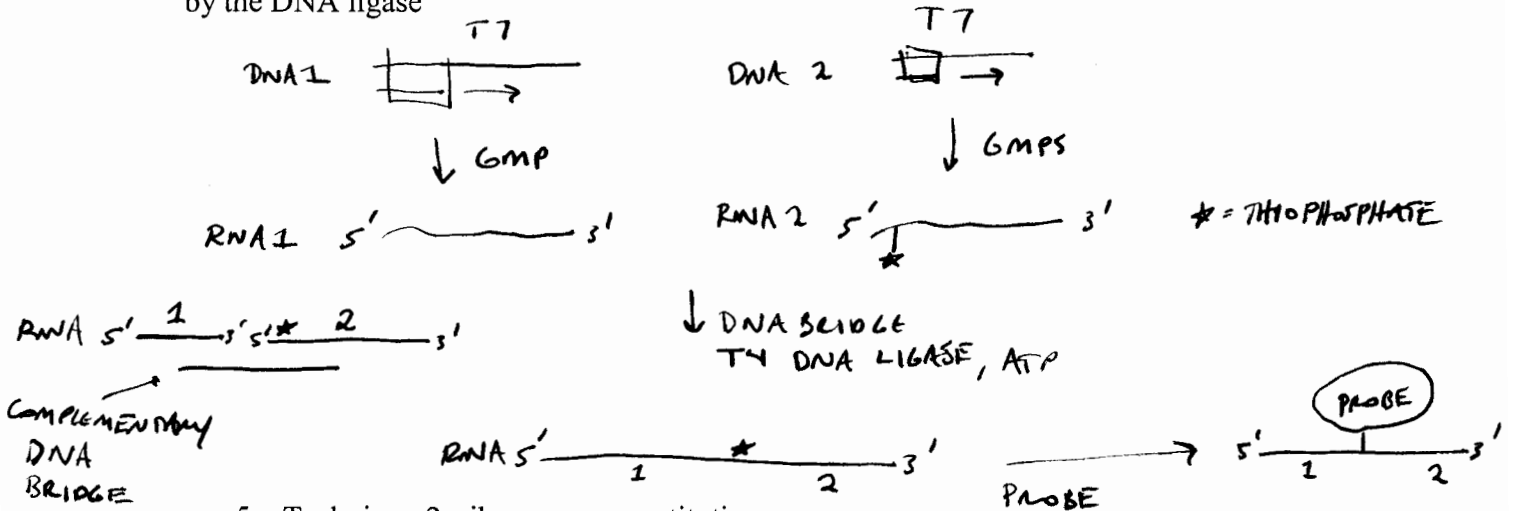 by the DNA ligase
T7
T7
DNA1
DNA 2
GMP
GMPS
RNA1 5' 3'
RNA 2 5' 3'
* = THIOPHOSPHATE
*
RNA 5' 1 3' 5' * 2 3'
DNA BRIDGE
T4 DNA LIGASE, ATP
COMPLEMENTARY
DNA
BRIDGE
RNA 5' 1 * 2 3'
PROBE
PROBE
5' 1 2 3'